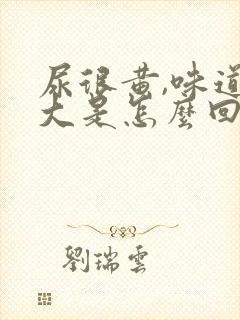 尿很黄,味道
大是怎麼回
劉瑞雲